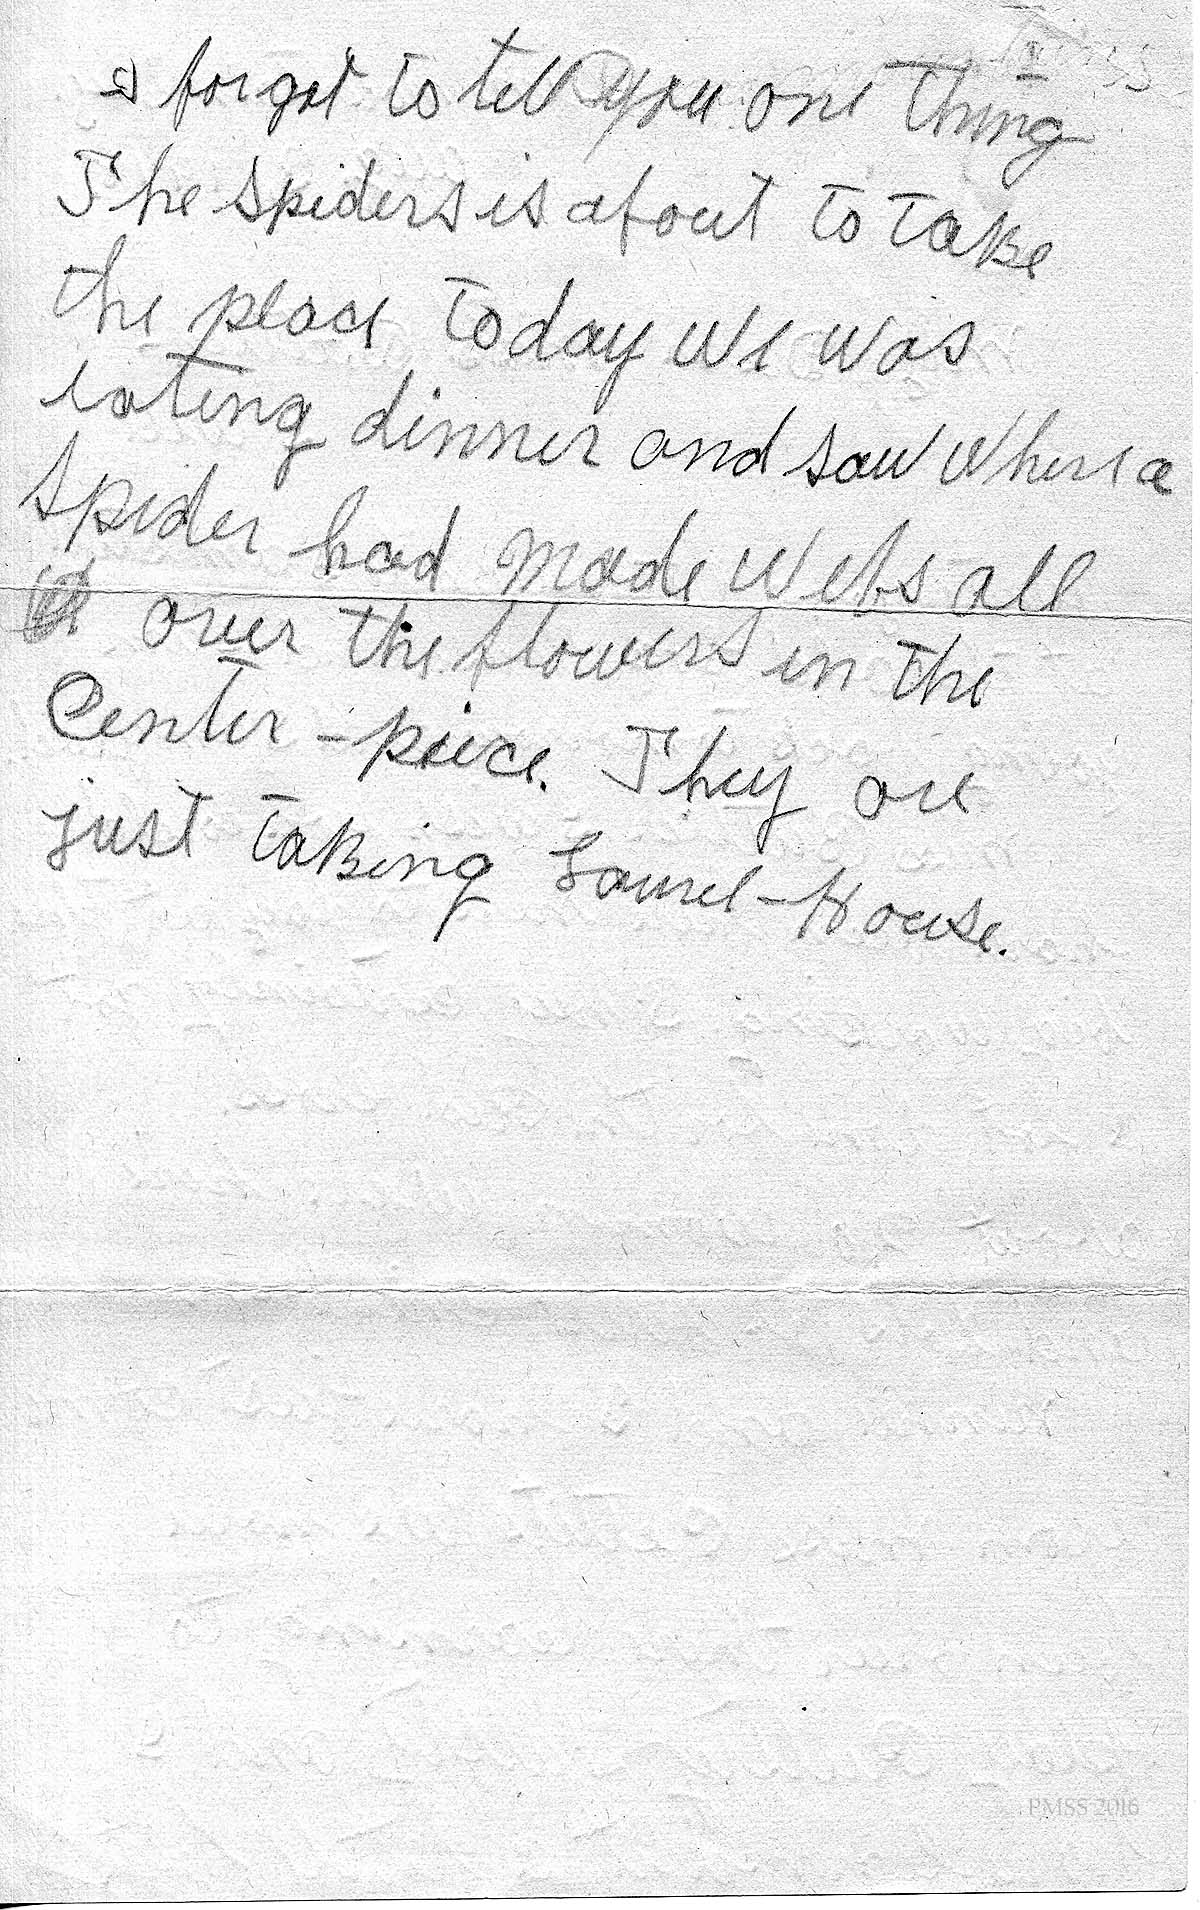 I forgot to tell you one thing
The spiders is about to take
the place today we was
eating dinner and saw where a
spider had made webs all
over the flowers in the
Center-peice. They are
just taking Laurel-House.
PMSS 2016